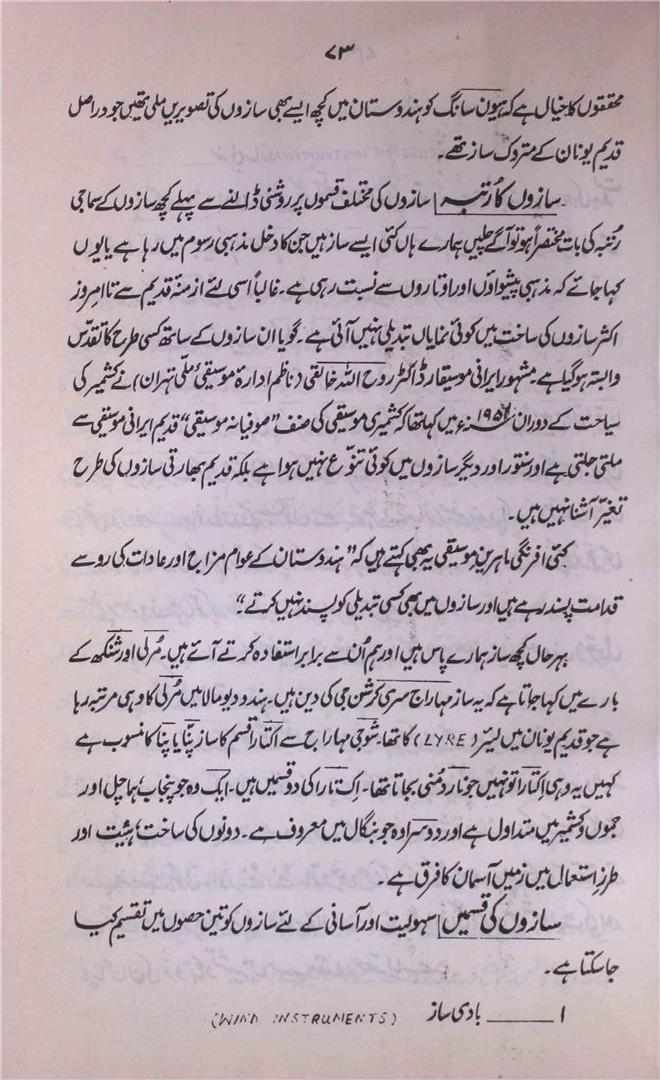 ۷۳
محققوں کا خیال ہے کہ ہیون سانگ کو ہندوستان میں کچھ ایسے بھی سازوں کی تصویریں ملی تھیں جو دراصل
قدیم یونان کے متروک ساز تھے۔
سازوں کا رُتبہ| سازوں کی مختلف قسموں پر روشنی ڈالنے سے پہلے کچھ سازوں کے سماجی
رُتبہ کی بات مختصراً ہو تو آگے چلیں ہمارے ہاں کئی ایسے ساز ہیں جن کا دخل مذہبی رسوم میں رہا ہے یا یوں
کہا جائے کہ مذہبی پیشواؤں اور اوتاروں سے نسبت رہی ہے۔ غالباً اسی لئے ازمنہ قدیم سے تا امروز
اکثر سازوں کی ساخت میں کوئی نمایاں تبدیلی نہیں آئی ہے۔ گویا ان سازوں کے ساتھ کسی طرح کا تقدّس
وابستہ ہو گیا ہے۔ مشہور ایرانی موسیقار ڈاکٹر روح اللہ خالقی (ناظم ادارۂ موسیقی ملّی تہران) نے کشمیر کی
سیاحت کے دوران ۱۹۵۶ء میں کہا تھا کہ کشمیری موسیقی کی صنف "صوفیانہ موسیقی" قدیم ایرانی موسیقی سے
ملتی جلتی ہے اور سنتور اور دیگر سازوں میں کوئی تنوّع نہیں ہوا ہے بلکہ قدیم بھارتی سازوں کی طرح
تغیّر آشنا نہیں ہیں۔
کئی افرنگی ماہرین موسیقی یہ بھی کہتے ہیں کہ "ہندوستان کے عوام مزاج اور عادات کی رو سے
قدامت پسند رہے ہیں اور سازوں میں بھی کسی تبدیلی کو پسند نہیں کرتے"۔
بہر حال کچھ ساز ہمارے پاس ہیں اور ہم اُن سے برابر استفادہ کرتے آئے ہیں۔ مُرلی اور شنکھ کے
بارے میں کہا جاتا ہے کہ یہ ساز مہاراج سری کرشن جی کی دین ہیں۔ ہندو دیومالا میں مُرلی کا وہی مرتبہ رہا
ہے جو قدیم یونان میں لیئر (LYRE) کا تھا۔ شوجی مہاراج سے اکتارا قسم کا ساز پنّا یا پنا کا منسوب ہے
کہیں یہ وہی اِکتارا تو نہیں جو نارد مُنی بجاتا تھا۔ اِکتارا کی دو قسمیں ہیں۔ ایک وہ جو پنجاب، ہماچل اور
جموں و کشمیر میں متداول ہے اور دوسرا وہ جو بنگال میں معروف ہے۔ دونوں کی ساخت، ہئیت اور
طرزِ استعمالی میں زمین آسمان کا فرق ہے۔
سازوں کی قسمیں| سہولیت اور آسانی کے لئے سازوں کو تین حصوں میں تقسیم کیا
جا سکتا ہے۔
۱ ــــــــــ بادی ساز (WIND INSTRUMENTS)